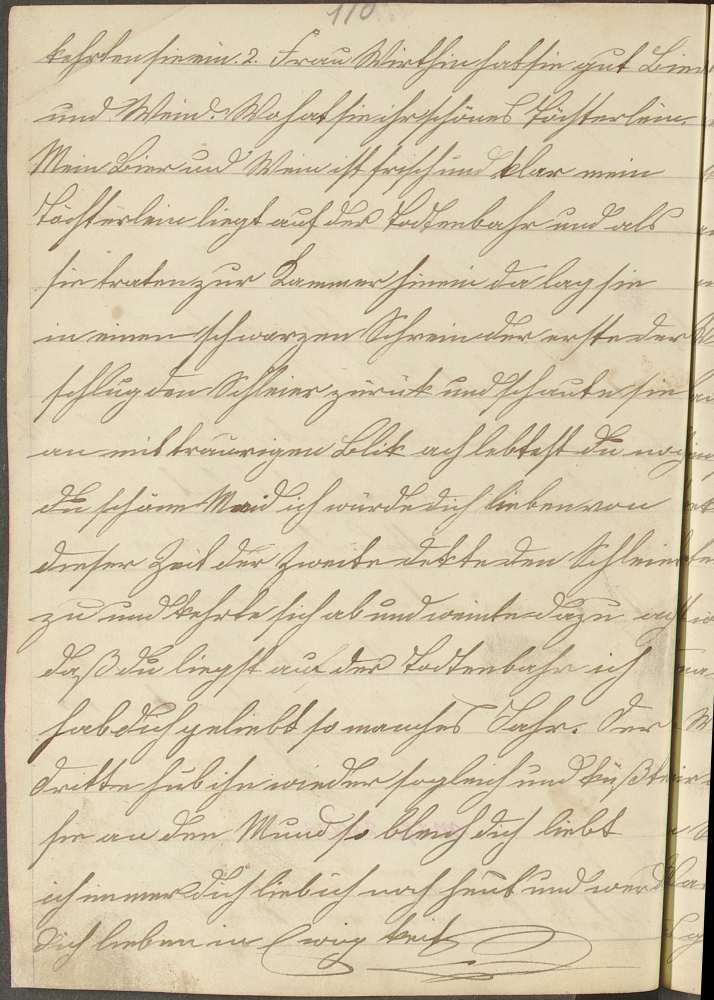 110
kehrten sie ein. 2. Frau Wirthin hat sie gut Bier
und Wein. Wo hat sie ihr schönes Töchterlein.
Mein Bier und Wein ist frisch und klar mein
Töchterlein liegt auf der Todtenbahr und als
sie traten zur Kammer hinein da lag sie
in einen schwarzen Schrein der erste der
schlug den Schleier zurük und schaute sie
an mit traurigen Blik ach lebtest du noch
du schöne Maid ich würde dich lieben von
dieser Zeit der Zweite dekte den Schleier
zu und kehrte sich ab und weinte dazu ach
daß du liegst auf der Todtenbahr ich
hab dich geliebt so manches Jahr. Der
dritte hub ihn wieder sogleich und küßte
sie an den Mund so bleich dich liebt
ich immer dich lieb ich noch heut und werd
dich lieben in Ewig keit